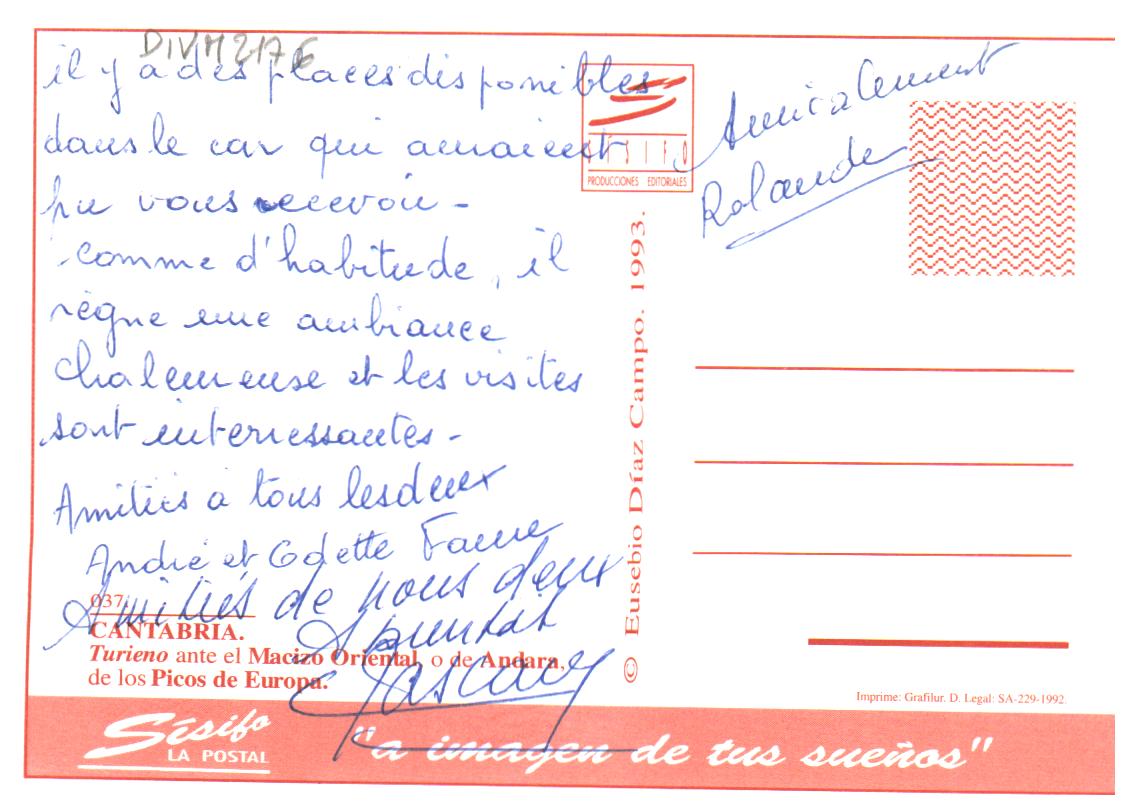 DIVM 2176
il y a des places disponibles
dans le car qui auraient
pu vous recevoir -
comme d'habitude, il
règne une ambiance
chaleureuse et les visites
sont interressantes -
Amitiés à tous les deux
André et Odette
Amitiés de nous deux
Amicalement
Rolande
SISIFO
PRODUCCIONES EDITORIALES
© Eusebio Díaz Campo. 1993.
037
CANTABRIA.
Turieno ante el Macizo Oriental, o de Andara,
de los Picos de Europa.
Imprime: Grafilur. D. Legal: SA-229-1992.
Sísifo
LA POSTAL
"a imagen de tus sueños"